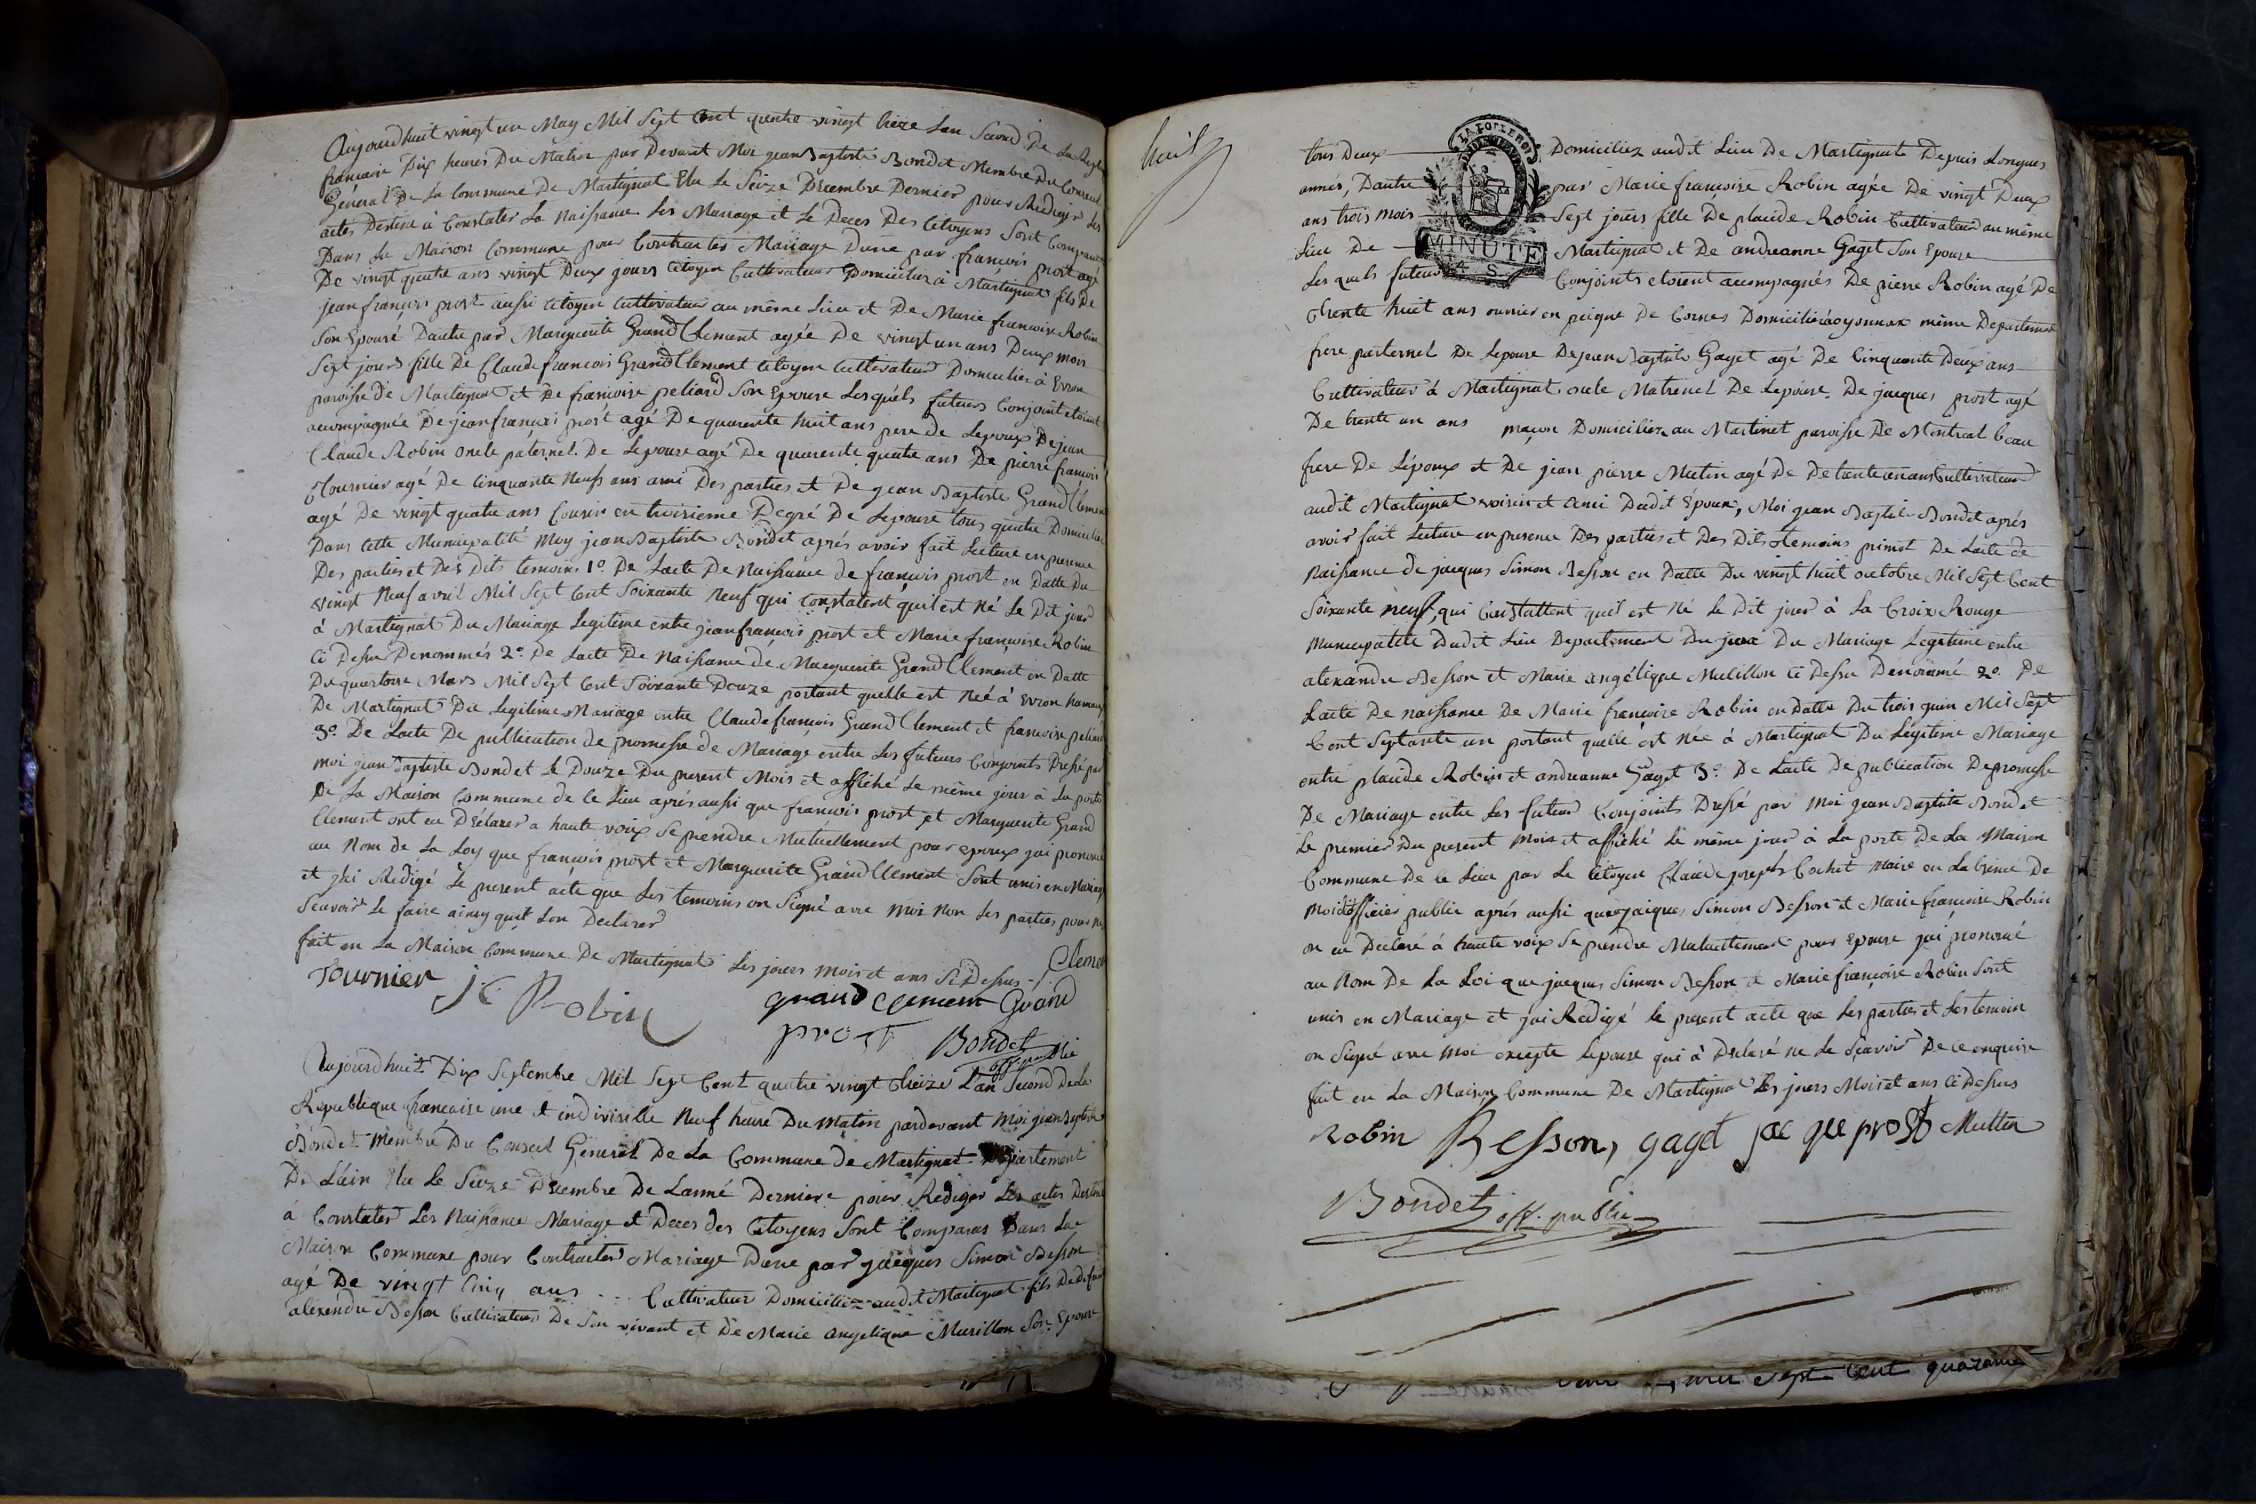 Aujourdhuit vingt un May Mil Sept Cent quatre vingt treize Lan Second De La Repb
francaise Dix heures Du Matin par Devant Moi jean Baptiste Bondet Membre Du Conseil
Général De La Commune De Martignat Elu Le Seize Decembre Dernier pour Rediger Les
actes Destiné à Constater La Naissance Les Mariage et Le Deces Des Citoyens Sont Comparu
Dans La Maison Commune pour Contracter Mariage Dune par francois prost agé
De vingt quatre ans vingt Deux jours Citoyen Cultivateur Domicilier à Martignat fils De
jean francois prost aussi Citoyen Cultivateur au même Lieu et De Marie francoise Robin
Son Epouse Dautre par Marguerite Grand Clement agée De vingt un ans Deux mois
Sept jours fille De Claude francois Grand Clement Citoyen Cultivateur Domicilier à Evron
paroisse de Martignat et De francoise peliard Son Epouse Lesquéls futurs Conjoint etoient
acompagnée De jean francois prost agé De quarente huit ans pere de Lepoux De jean
Claude Robin oncle paternel De Lepouse agé De quarente quatre ans De pierre francois
Tournier agé De Cinquante Neuf ans ami Des parties et De jean Baptiste Grand Clement
agé De vingt quatre ans Cousin en troisieme Degré De Lepouse tous quatre Domicilier
Dans Cette Municipalité Moy jean Baptiste Bondet aprés avoir fait Lecture en presence
Des parties et Des Dits temoins 1º De Lacte De Naissance de francois prost en Datte Du
vingt Neuf avril Mil Sept Cent Soixante Neuf qui Constatent quil est Né Le Dit jour
à Martignat Du Mariage Legiteme entre jean francois prost et Marie francoise Robin
Ci Dessu Denommés 2º De Lacte De Naissance de Marguerite Grand Clement en Datte
Du quartorze Mars Mil Sept Cent Soixante Douze portant quelle est Neé à Evron hameau
De Martignat Du Legitime Mariage entre Claude francois Grand Clement et francoise peliard
3º De Lacte De publication de promesse de Mariage entre Les futurs Conjoints Dressé par
moi jean Baptiste Bondet Le Douze Du present Mois et affiché Le même jour à La porte
De La Maison Commune de Ce Lieu aprés aussi que francois prost et Marguerite Grand
Clement ont eu Déclarer a haute voix Se prendre Mutuellement pour epoux jai prononcé
au Nom de La Loy que francois prost et Marguerite Grand Clement Sont unis en Mariage
et jai Redigé Le present acte que Les temoins on Signé avec moi Non Les parties pour ne
Scavoir Le faire ainsy quil Lon Declarer
fait en La Maison Commune De Martignat Les jours Mois et ans Ci Dessus
Clement
Tournier JC Robin grand Clement Grand
prost Bondet
off public
Aujourdhuit Dix Septembre Mil Sept Cent quatre vingt treize Lan Second De La
République francaise une et indivisible Neuf heure Du Matin pardevant Moi jean Baptiste
Bondet Membre Du Conseil Géneral De La Commune de Martignat Departement
De Lain Elu Le Seize Decembre De Lanné Derniere pour Rediger Les actes Destiné
à Constater Les Naissance Mariage et Deces des Citoyens Sont Comparus Dans La
Maison Commune pour Contracter Mariage Dune par jacques Simon Besson
agé De vingt Cinq ans Cultivateur Domicilier audit Martignat fils De defunt
alexendre Besson Cultivateur De Son vivant et De Marie Angelique Murillon Son Epouse
huit
tous Deux Domiciliez audit Lieu De Martignat Depuis Longues
annés, Dautre par Marie francoise Robin agée De vingt Deux
ans trois mois Sept jours fille De placide Robin Cultivateur au même
Lieu De Martignat et De andreanne Gaget Son Epouse
LA LOI LE ROI
MINUTE
4 S
Les quels futurs Conjoints etoient acompagnés De pierre Robin agé De
trente huit ans ouvrier en peigne De Cornes Domicilié à oyonnax même Departement
frere paternel De Lepouse De jean Baptiste Gaget agé De Cinquante Deux ans
Cultivateur à Martignat oncle Maternel De Lepouse De jacques prost agé
De trente un ans maçon Domicilier au Martinet paroisse De Montreal beau
frere De Lépoux et De jean pierre Mutin agé De De trente un ans Cultivateur
audit Martignat voisin et ami Dudit Epoux, Moi jean Baptiste Bondet aprés
avoir fait Lecture en presence Des parties et Des Dits temoins primot De Lacte de
Naissance de jacques Simon Besson en Datte Du vingt huit octobre Mil Sept Cent
Soixante neuf, qui Constattent quil est Né Le Dit jour à La Croix Rouge
Municipalité Dudit Lieu Departement Du jura Du Mariage Legitime entre
alexandre Besson et Marie angélique Mulillon Ci Dessu Denommé 2º De
Lacte De naissance De Marie françoise Robin en Datte Du trois juin Mil Sept
Cent Septante un portant quelle est Neé à Martignat Du Légitime Mariage
entre placide Robin et andreanne Gaget 3º De Lacte De publication De promesse
De Mariage entre Les futur Conjoints Dressé par Moi jean Baptiste Bondet
Le premier Du present Mois et affiché Le même jour à La porte De La Maison
Commune De Ce Lieu par Le Citoyen Claude joseph Cochet Maire en Labsence De
Moi officier public aprés aussi que jacques Simon Besson et Marie francoise Robin
on eu Declaré à haute voix Se prendre Mutuellement pour Epoux jai prononcé
au Nom De La Loi que jacques Simon Besson et Marie francoise Robin Sont
unis en Mariage et jai Redigé Le present acte que Les parties et Les temoin
on Signé avec Moi excepte Lepouse qui à Declaré ne Le Scavoir De ce enquise
fait en La Maison Commune De Martignat Les jours Mois et ans Ci Dessus
Robin Besson, gaget jac que prost Muttin
Bondet off. public
mil Sept Cent quarante